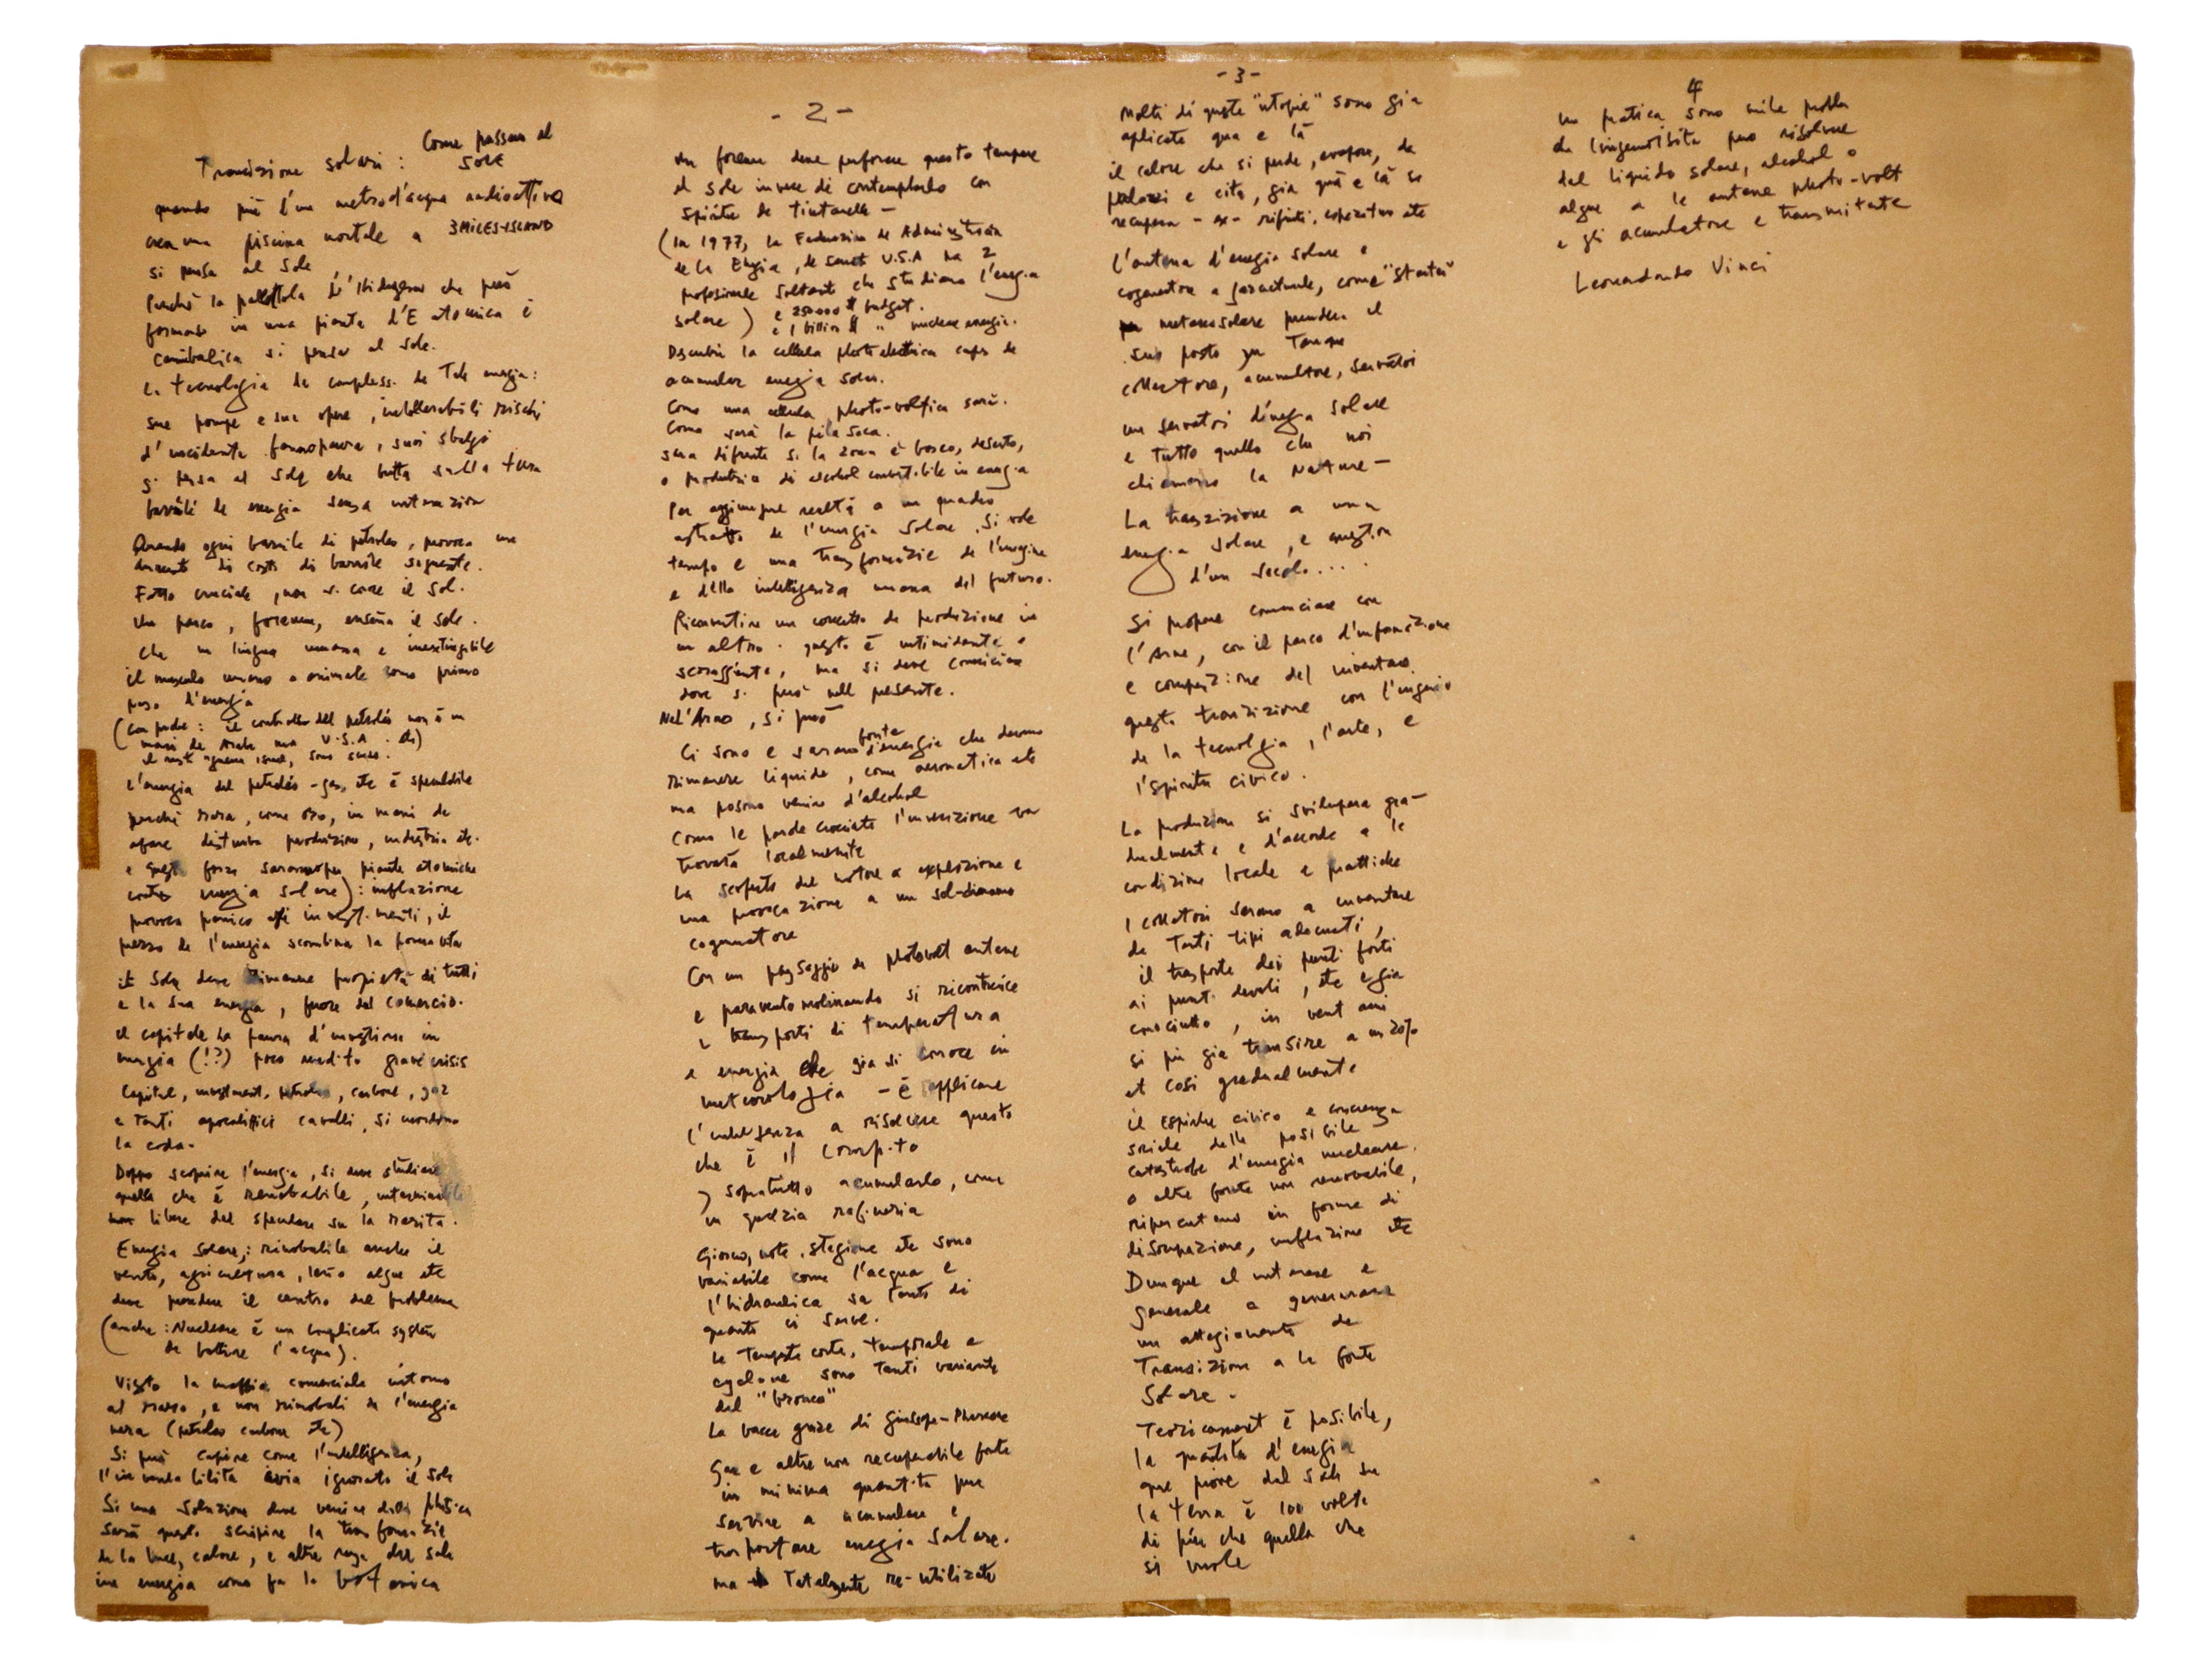 Transizione solari : Come passare al
SOLE
quando più d'un metro d'acqua radioattiva
crea una piscina mortale a 3MILES-ISLAND
si pensa al Sole
Perchè la pallottola d'Hidrogeno che può
formarsi in una pianta d'E atomica è
canibalica si pensa al Sole.
La tecnologia da de Tale energia:
sue pompe e sue opere, intollerabili rischi
d'incidente, suoi sbagli
si pensa al Sole che butta sulla terra
barili de energia senza
Quando ogni barile di petroleo, provoca un
aumento di costi di barile seguente.
Fatto cruciale, non si corre il Sol.
Un parco, forever, enseña il sole.
che in lingua umana e inextinguibile
il musculo umano o animale sono primo
paso d'energia
(il controllo del petroleo non è in
mani de Arabi ma U.S.A. etc)
L'energia del petroleo - gas, etc è
perchè rara, come oro, in mani de
produzione, industria etc.
e queste forze piante atomiche
contro energia solare): inflazione
provoca panico investimenti, il
prezzo de l'energia la
il Sole deve rimanere propietà di tutti
e la sua energia, fuore del comercio.
il capitale ha paura d'investirse in
energia (!?) poco redito grave crisis
Capital, investment, petroleo, carbone, gaz
e tanti apocaliffici cavalli, si mordono
la coda.
Doppo scoprire l'energia, si deve studiare
quella che è renobabile, interminabile
libera del speculare su la rarità.
Energia solare; rinobabile anche il
vento, agricultura, leño algue etc
deve prendere il centro del problema
(anche: Nucleare è un complicato system
de bollire l'acqua).
Visto la maffia comerciale intorno
al raro, e non rinobabili de l'energia
nera (petroleo carbone etc)
Si può capire come l'intelligenza,
l' avia ignorato il Sole
Si una soluzione deve venire dalla phisica
sarà questo scoprire la
de la luce, calore, e altre del sole
in energia como fa la botanica
- 2 -
Un forever deve perforare questo tempore
il Sole invece di contemplarlo con
spirito de tintarella -
(In 1977, la Federazion de Administracion
de la Energia, de U.S.A ha 2
soltanto che studiano l'energia
solare) e 250000 $ budget.
e 1 billion $ " nucleare energia.
Descubrir la cellula photo electtrica capaz de
acumular energia solar.
Como una cellula photo-voltica sarà.
Como sarà la pila seca.
sera difrente si la zona è bosco, deserto,
o produtrice di alcohol convertibile in energia
Per aggiungere realtà a un quadro
astratto de l'energia Solare. Si vole
tempo e una de l'energia
e della intelligenza umana del futuro.
Riconvertire un concetto de produzione in
un altro. questo è intimidante e
, ma si deve comiciare
dove si può nell presente.
Nel'Arno, si può
Ci sono e sarano fonte d'energia che devono
rimanere liquide, come aeronatica etc
ma posono venire d'alcohol
Como le parole crociate l'invenzione va
trovata localmente
La scoperta del motore a explosione e
una provocazione a un sol-dinamo
cogeneratore
Con un paysaggio de photovolt antene
e paravento molinando si ricontruice
i transporti di temperatura
e energia che gia si conoce in
meteorologia - è applicare
l'intelligenza a risolvere questo
che è il compito
sopratutto acumularlo, come
in qualzia rafineria
Giorno, note, stagione etc sono
variabile come l'acqua e
l'hidraulica sa tanto di
quanto ci serve.
Le tempeste corte, temporale e
cyclone sono tanti variante
del "bronco"
La vacca graze di
Gas e altre non recuperabile fonte
in minima quantità per
servire a acumulare e
transportare energia Solare.
ma totalmente re-utilizate
- 3 -
Molti di queste "utopie" sono gia
aplicate qua e là
il calore che si perde, evapora, da
palazzi e cità, gia quà e là se
recupera - ex - rifiuti, etc
L'antena d'energia solare e
cogeneratore a, come "statua"
metereosolare prendera il
suo posto
colletore, acumulatore, servatori
un servatori d'energia Solare
e tutto quello che noi
chiamamo la Nature -
La transizione a una
energia Solare, e question
d'un secolo....
Si propone comenciare con
l'Arno, con il parco d'informazione
e del inventario
questa transizione con l'ingenio
de la tecnologia, l'arte, e
l'spirito civico.
La produzione si svilupera gra-
dualmente e d'accordo a le
condizione locale e prattiche
I collettori serano a inventare
de tanti tipi adecuati,
il trasporte dai punti forti
ai punti devoli, etc e gia
conociutto, in vent ani
si può gia transire a un 20%
et così gradualmente
il espirito civico e conscienza
sociale della posibile
catastrofe d'energia nucleare.
o altre fonte non renovabile,
ripercuteno in forma di
disoupazione, inflazione etc
Dunque el interesse e
generale a generare
un attegiamento de
Transizione a la fonte
Solare.
Teoricament è posibile,
la quantità d'energia
que piove dal sole su
la terra è 100 volte
di più che quella che
si vuole
4
In pratica sono mile probla
che l'ingeniosità può risolvere
dal liquido solare, alcohol o
algue a le antene photo-volt
e gli acumulatore e transmitente
Leonardondo Vinci